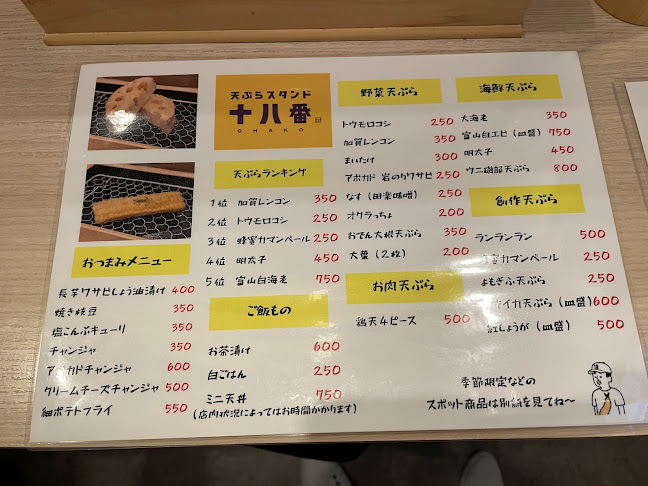 天ぷらスタンド
十八番
OHAKO
天ぷらランキング
1位 加賀レンコン 350
2位 トウモロコシ 250
3位 蜂蜜カマンベール 250
4位 明太子 450
5位 富山白海老 750
おつまみメニュー
長芋ワサビしょう油漬け 400
焼き枝豆 350
塩こんぶキューリ 350
チャンジャ 350
アボカドチャンジャ 600
クリームチーズチャンジャ 500
細ポテトフライ 550
ご飯もの
お茶漬け 600
白ごはん 250
ミニ天丼 750
(店内状況によってはお時間がかります)
野菜天ぷら
トウモロコシ 250
加賀レンコン 350
まいたけ 300
アボカド 岩のりワサビ 250
なす(田楽味噌) 250
オクラっちょ 200
おでん大根天ぷら 350
大葉(2枚) 200
お肉天ぷら
鶏天4ピース 500
海鮮天ぷら
大海老 350
富山白エビ(皿盛) 750
明太子 450
ウニ磯部天ぷら 800
創作天ぷら
ランランラン 500
蜜カマンベール 250
よもぎふ天ぷら 250
イカ天ぷら(皿盛) 600
紅しょうが(皿盛) 500
季節限定などの
スポット商品は別紙を見てね〜